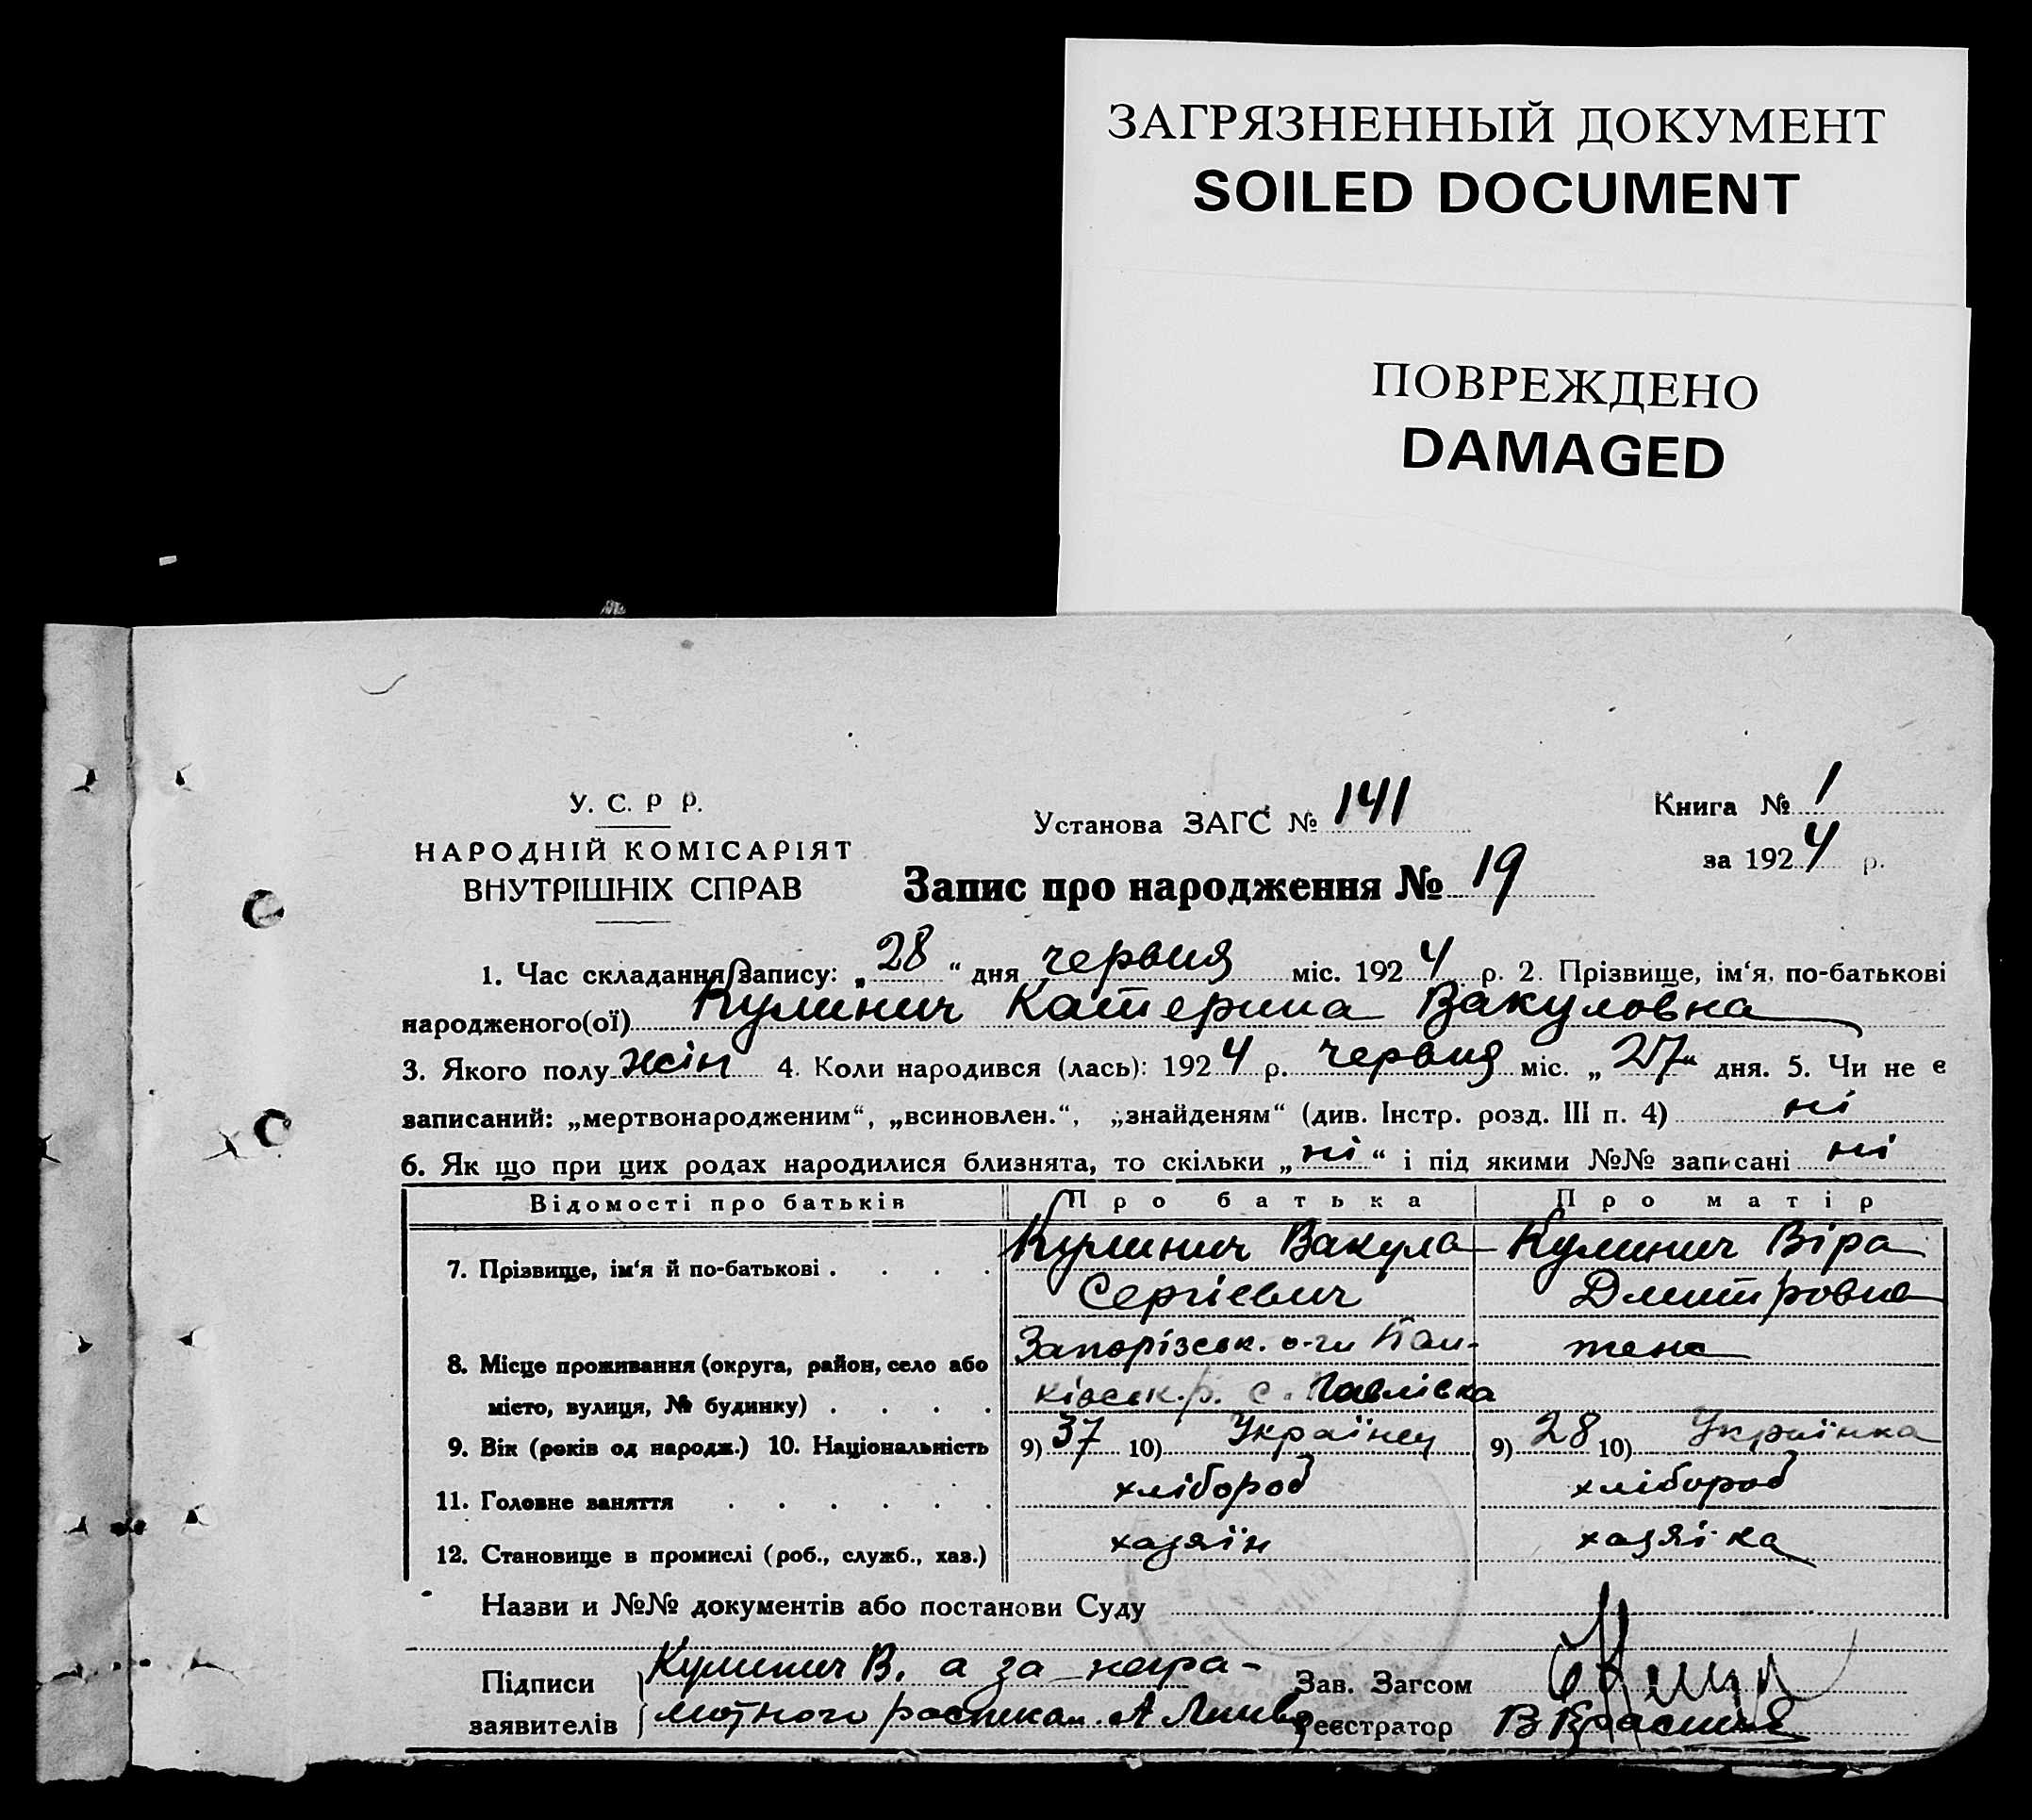 ЗАГРЯЗНЕННЫЙ ДОКУМЕНТ
SOILED DOCUMENT
ПОВРЕЖДЕНО
DAMAGED
У. С. Р Р.
НАРОДНІЙ КОМІСАРІЯТ
ВНУТРІШНІХ СПРАВ
Установа ЗАГС № 141
Книга № 1
за 1924 р.
Запис про народження № 19
1. Час складання запису: „28“ дня червня міс. 1924 р. 2. Прізвище, ім‘я, по-батькові
народженого(ої) Кулинич Катерина Вакуловна
3. Якого полу жін 4. Коли народився (лась): 1924 р. червня міс. „27“ дня. 5. Чи не є
записаний: „мертвонародженим“, „всиновлен.“, „знайденям“ (див. Інстр. розд. III п. 4) ні
6. Як що при цих родах народилися близнята, то скільки „ні“ і під якими №№ записані ні
Відомості про батьків Про батька Про матір
7. Прізвище, ім‘я й по-батькові . . . . Кулинич Вакула Кулинич Віра
Сергієвич Дмитровна
8. Місце проживання (округа, район, село або Запорізськ. о-ги теж
місто, вулиця, № будинку) . . . . р. с. Павлівка
9. Вік (років од народж.) 10. Національність 9) 37 10) Українец 9) 28 10) Українка
11. Головне заняття . . . . . . хлібороб хлібороб
12. Становище в промислі (роб., служб., хаз.) хазяїн хазяїка
Назви и №№ документів або постанови Суду
Підписи Кулинич В. а за негра-
заявителів мотного А
Зав. Загсом
Реєстратор В